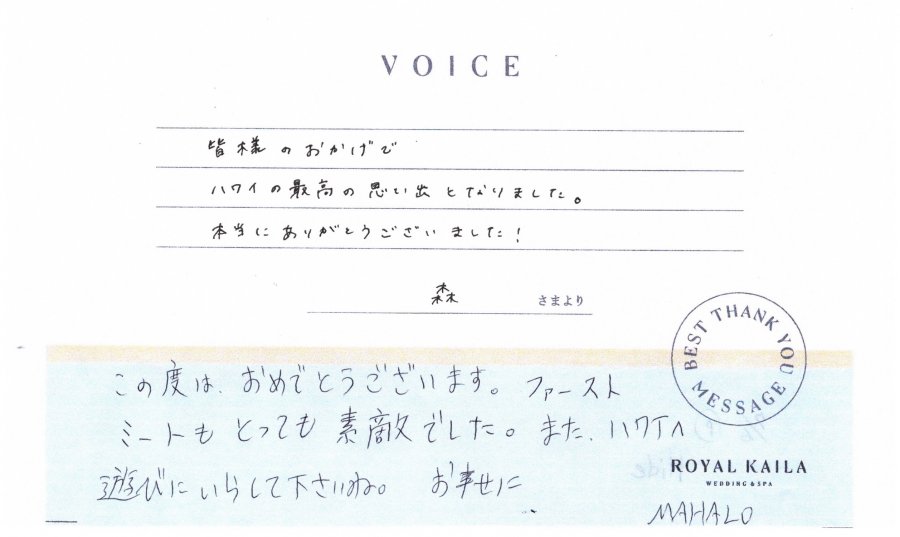 VOICE
皆様のおかげで
ハワイの最高の思い出となりました。
本当にありがとうございました!
森 さまより
BEST THANK YOU MESSAGE
この度は、おめでとうございます。ファースト
ミートもとっても素敵でした。また、ハワイへ
遊びにいらして下さいね。 お幸せに
ROYAL KAILA
WEDDING & SPA
MAHALO